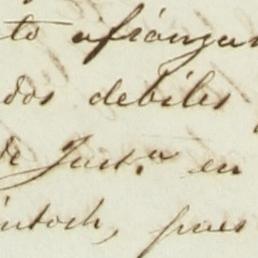 to afianzar
dos debiles
de Just.ª en
intosh, pues